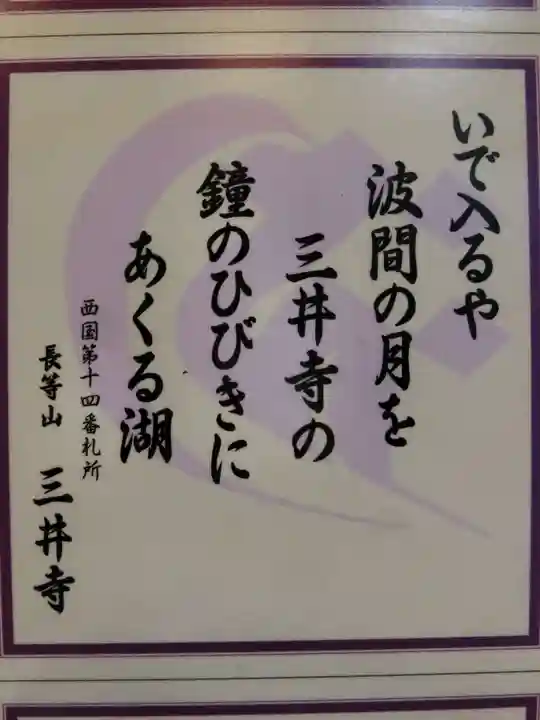 いで入るや
波間の月を
三井寺の
鐘のひびきに
あくる湖
西国第十四番札所
長等山 三井寺